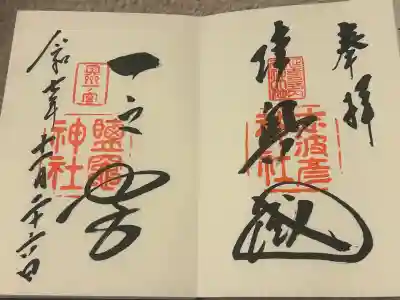 奉拝
陸奥國
志波彦
神社
一之宮
鹽竈
神社
令和七年十一月二十六日